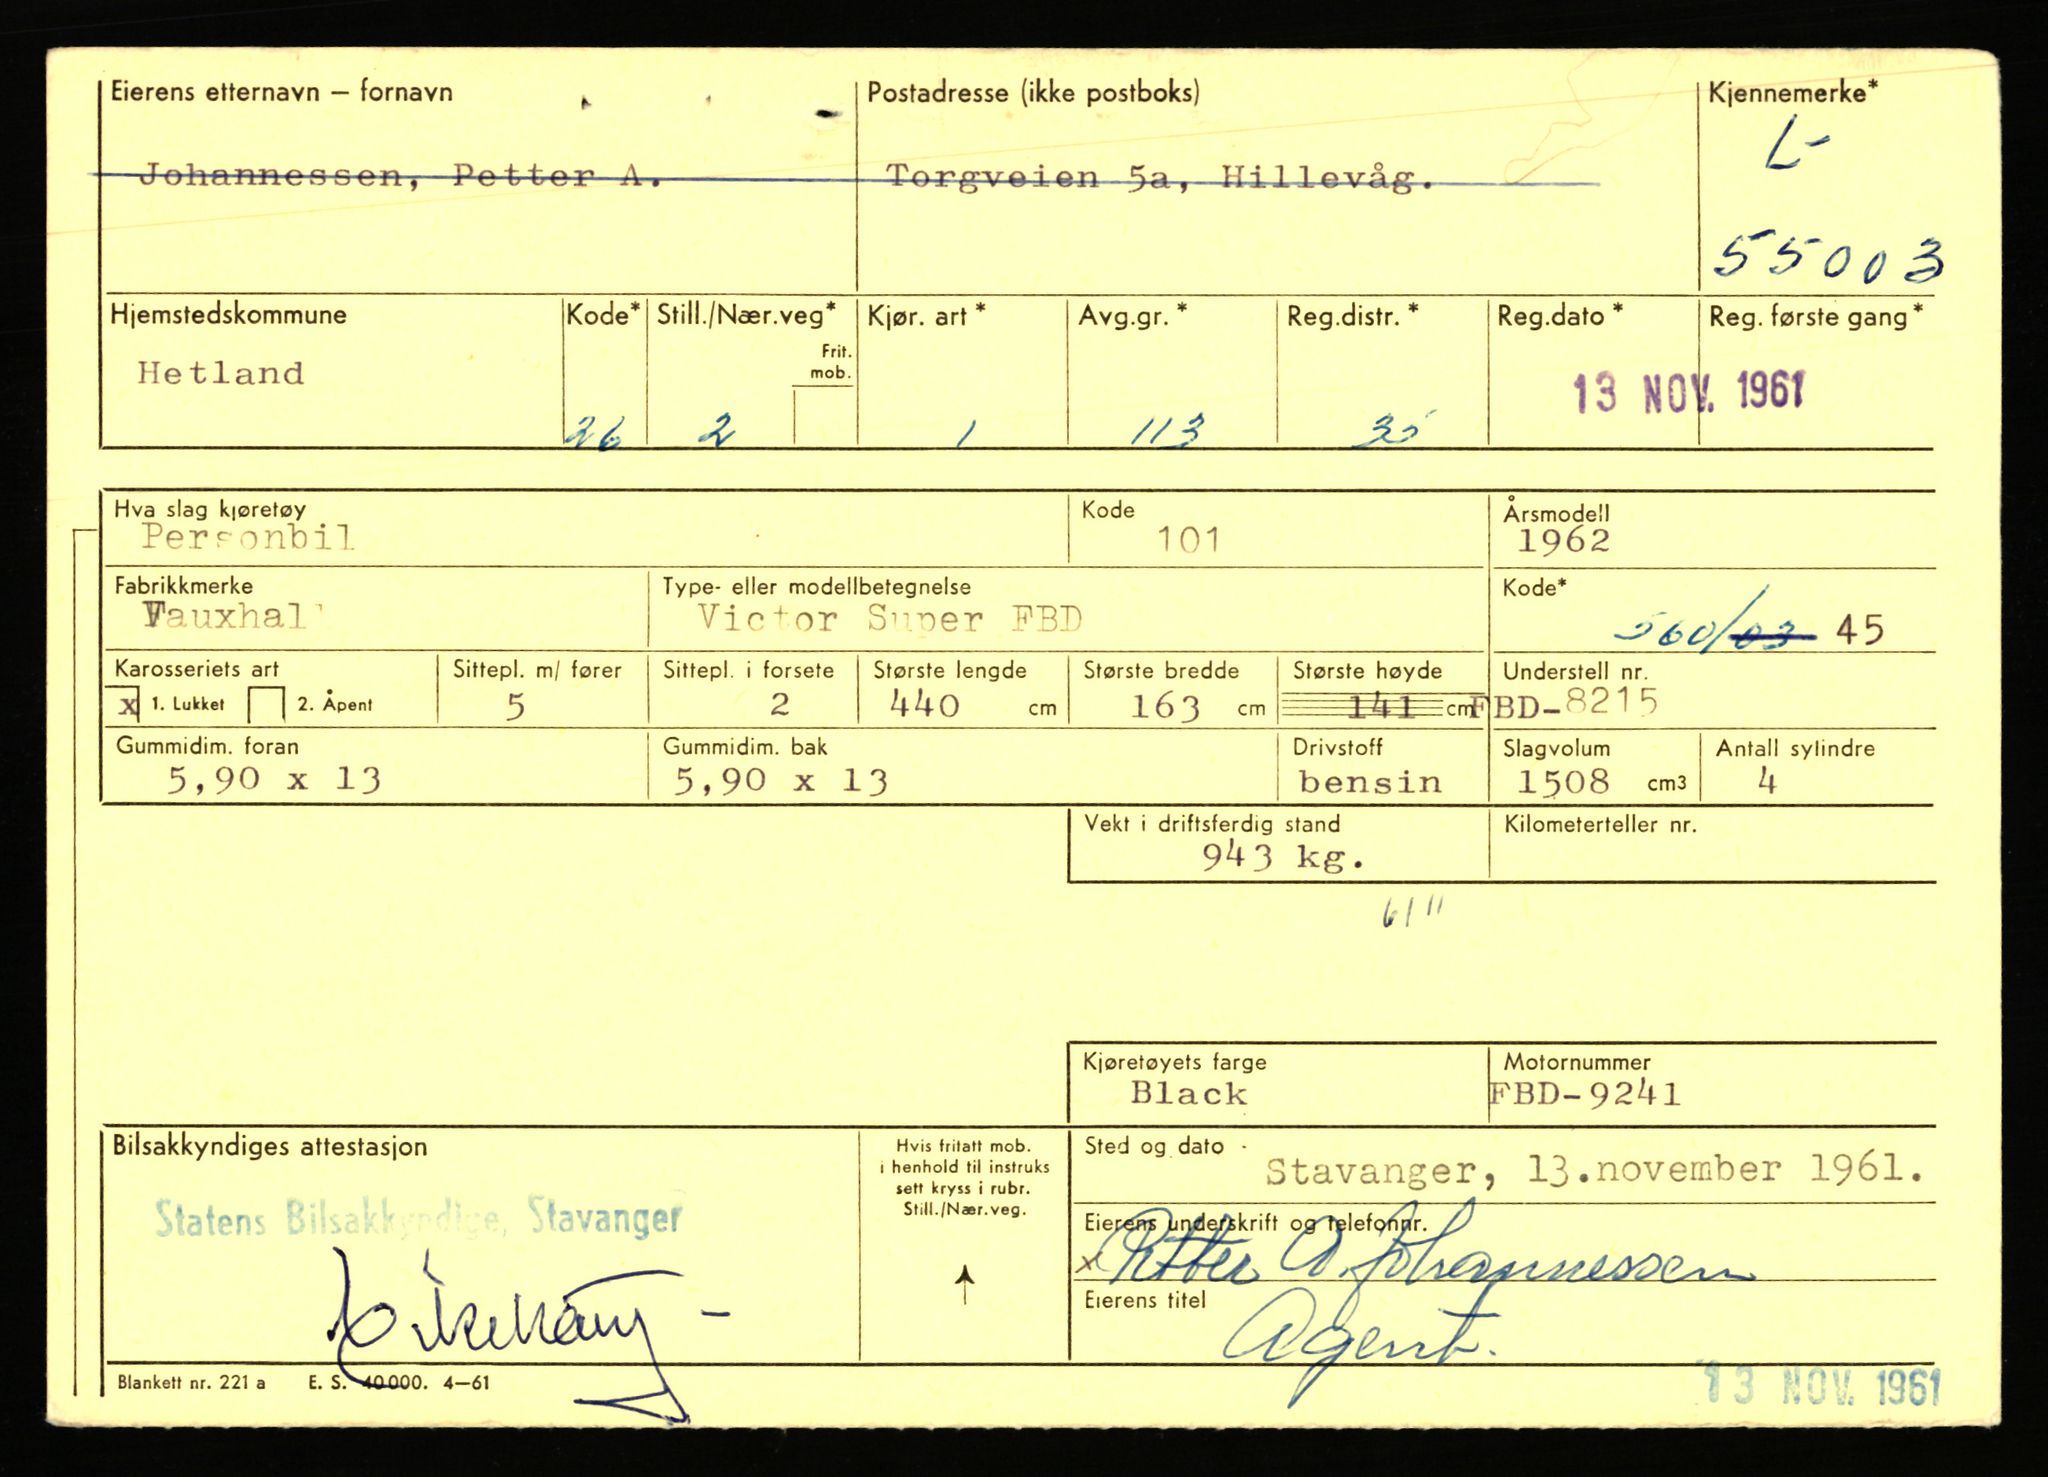 Eierens etternavn – fornavn Postadresse (ikke postboks) Kjennemerke*
L-
Johannessen, Petter A. Torgveien 5a, Hillevåg.
55003
Hjemstedskommune Kode* Still./Nær.veg* Kjør. art* Avg.gr.* Reg.distr.* Reg.dato* Reg. første gang*
Frit.
mob.
Hetland 13 NOV. 1961
26 2 1 113 35
Hva slag kjøretøy Kode Årsmodell
Personbil 101 1962
Fabrikkmerke Type- eller modellbetegnelse Kode*
Vauxhall Victor Super FBD 560/03 45
Karosseriets art Sittepl. m/ fører Sittepl. i forsete Største lengde Største bredde Største høyde Understell nr.
x 1. Lukket 2. Åpent 5 2 440 cm 163 cm 141 cm FBD-8215
Gummidim. foran Gummidim. bak Drivstoff Slagvolum Antall sylindre
5,90 x 13 5,90 x 13 bensin 1508 cm3 4
Vekt i driftsferdig stand Kilometerteller nr.
943 kg.
6111
Kjøretøyets farge Motornummer
Black FBD-9241
Bilsakkyndiges attestasjon Hvis fritatt mob. Sted og dato
i henhold til instruks Stavanger, 13.november 1961.
sett kryss i rubr.
Still./Nær.veg.
Statens Bilsakkyndige, Stavanger Eierens underskrift og telefonnr.
x Petter A. Johannessen
Eierens titel
Agent.
Blankett nr. 221 a E. S. 40000. 4–61 13 NOV. 1961